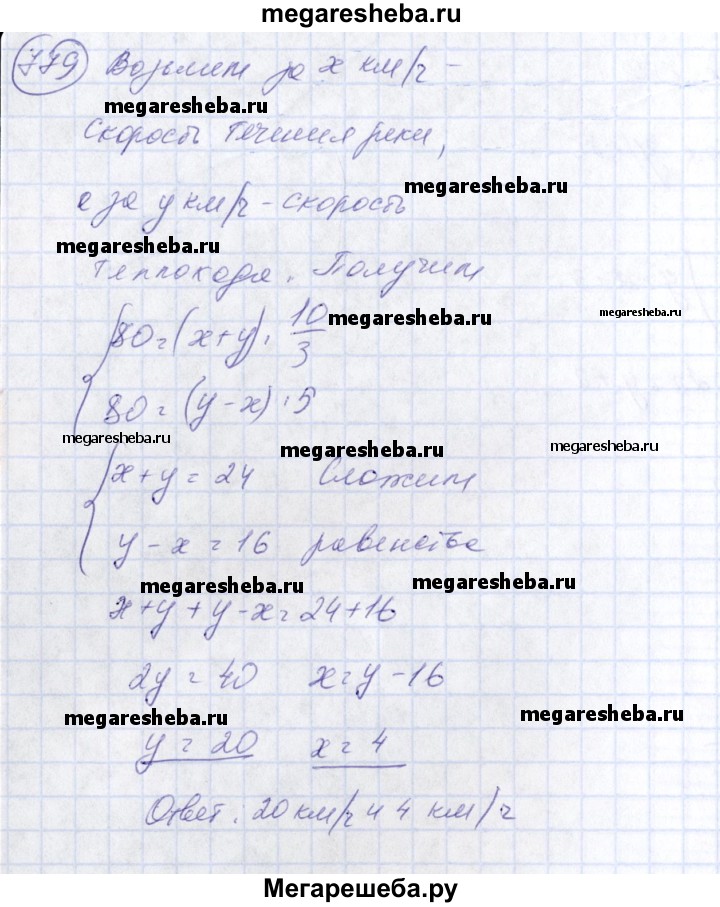 megaresheba.ru
779 Возьмем за x км/ч -
megaresheba.ru
скорость течения реки,
megaresheba.ru
а за y км/ч - скорость
megaresheba.ru
теплохода. Получим
80 = (x+y) · 10/3
megaresheba.ru
megaresheba.ru
80 = (y-x) · 5
megaresheba.ru
megaresheba.ru
megaresheba.ru
x+y = 24 Сложим
y-x = 16 равенства
megaresheba.ru
megaresheba.ru
x+y+y-x = 24+16
2y = 40 x = y-16
megaresheba.ru
megaresheba.ru
y = 20 x = 4
Ответ: 20 км/ч и 4 км/ч
Мегарешеба.ру